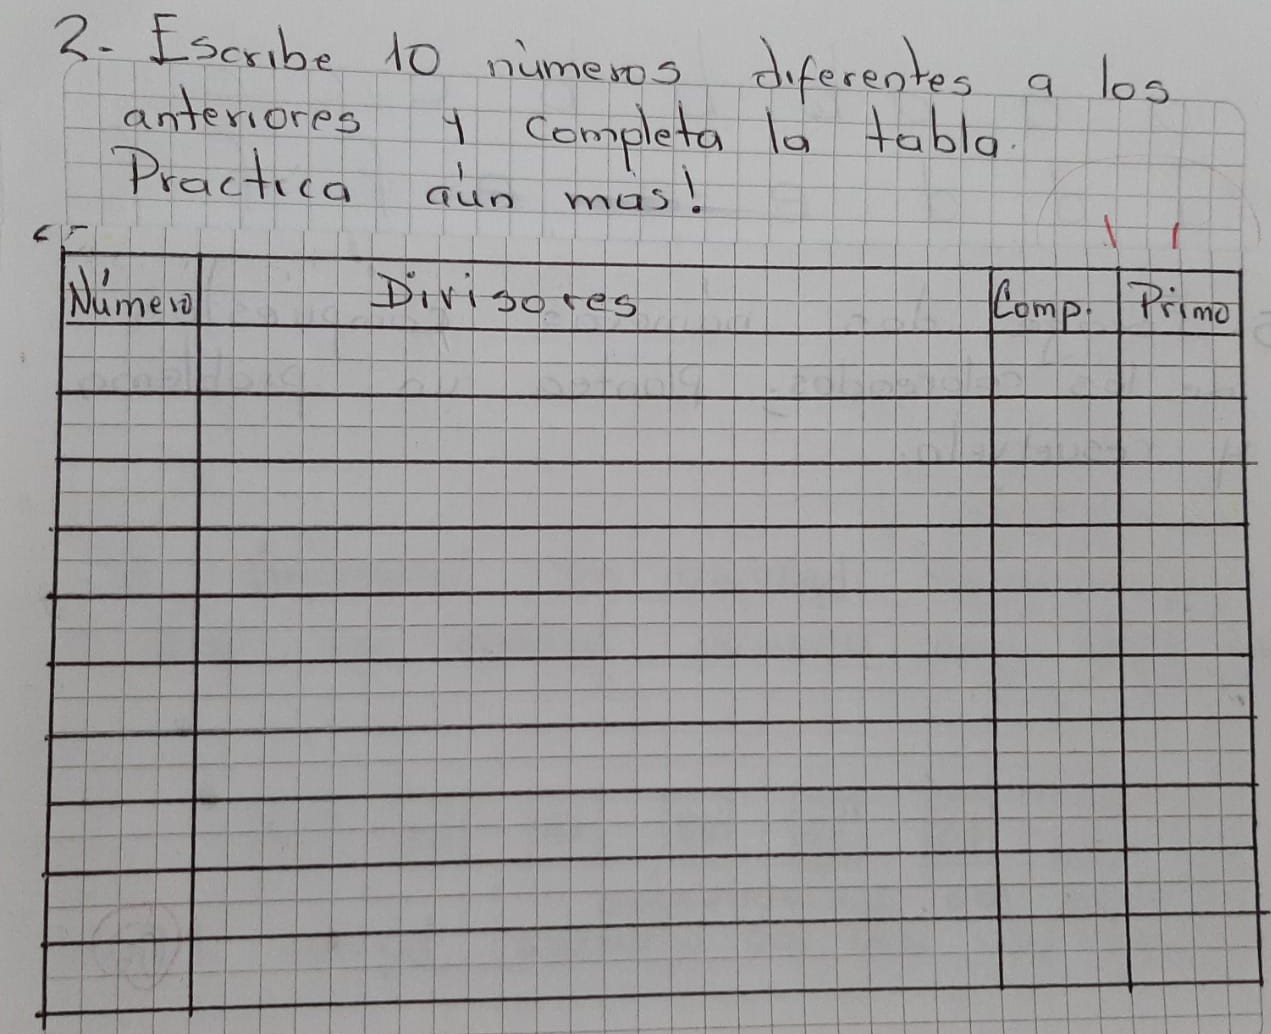 2- Escribe 10 números diferentes a los
anteriores y completa la tabla.
Practica aún mas!
Número Divisores Comp. Primo